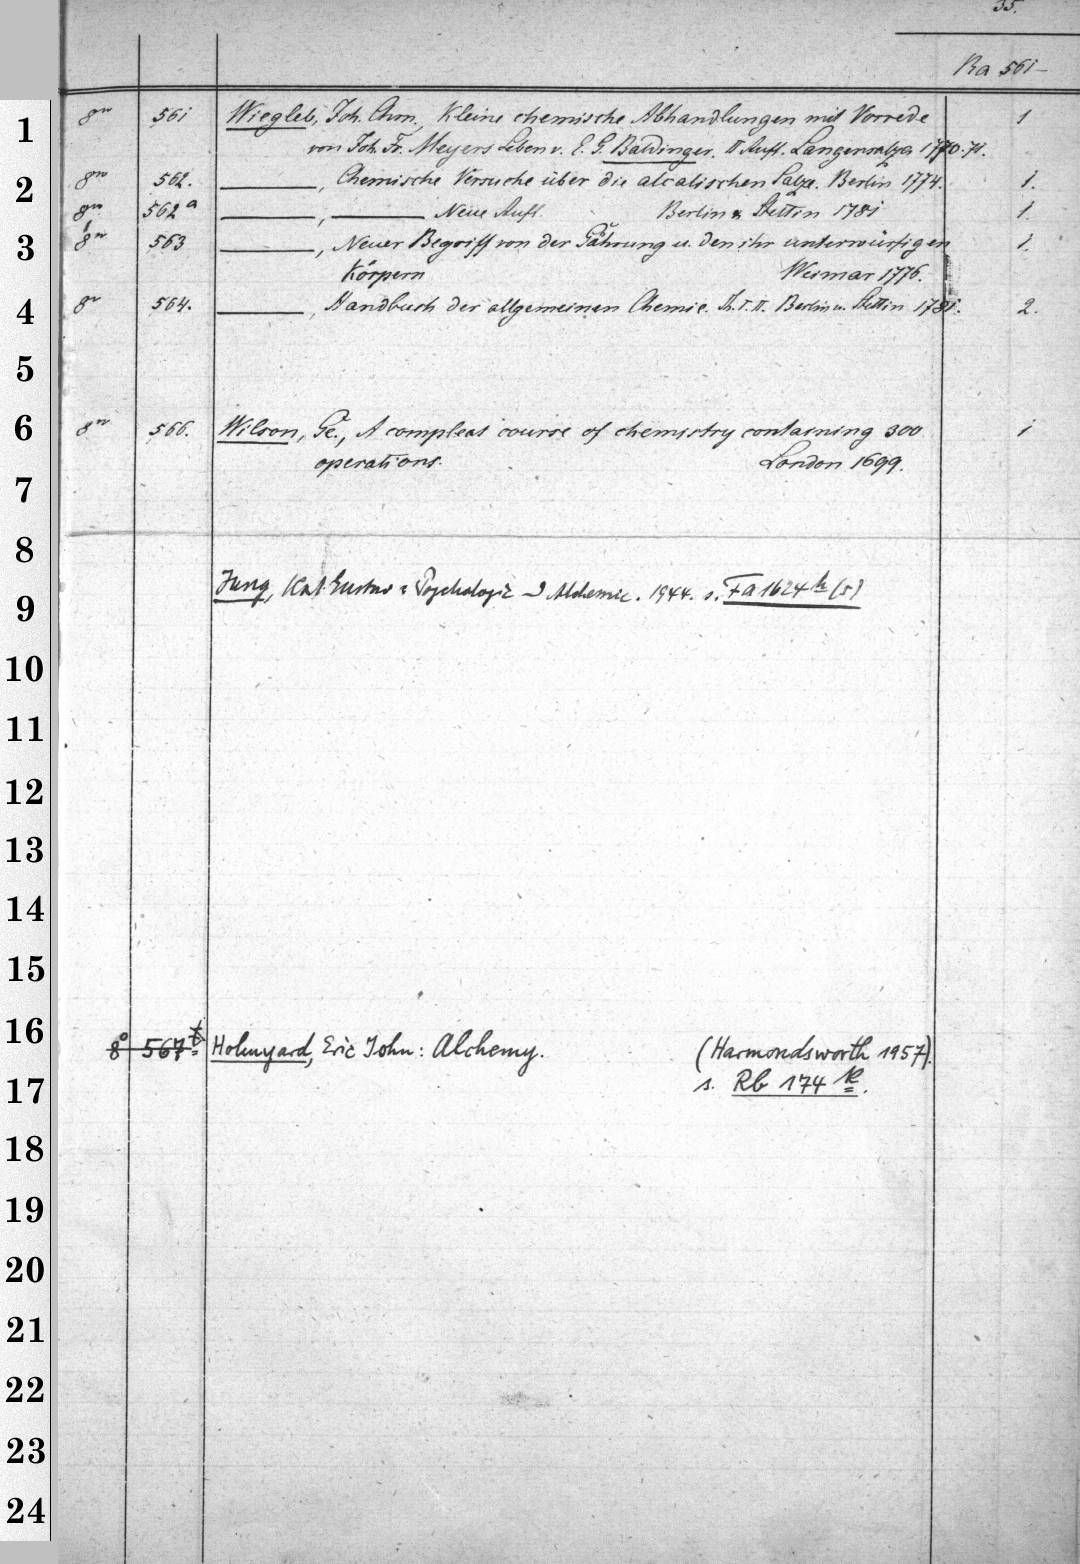 35.
Ra 561-
1 8vo 561 Wiegleb, Joh. Chrn., Kleine chemische Abhandlungen mit Vorrede 1
von Joh. Fr. Meyers Leben v. E. G. Baldinger. II Aufl. Langensalza 1770-71.
2 8vo 562. ———, Chemische Versuche über die alcalischen Salze. Berlin 1774. 1.
8vo 562a ———, ——— Neue Aufl. Berlin u. Stettin 1781 1.
3 8vo 563 ———, Neuer Begriff von der Gährung u. den ihr unterwürfigen 1.
Körpern Weimar 1776.
4 8vo 564. ———, Handbuch der allgemeinen Chemie. Th. I. II. Berlin u. Stettin 1781. 2.
5
6 8vo 566. Wilson, Ge., A compleat course of chemistry containing 300 1
operations. London 1699.
7
8
9 Jung, Karl Gustav: Psychologie u Alchemie. 1944. s. Fa 1624 h (5)
10
11
12
13
14
15
16 8° 567 Holmyard, Eric John: Alchemy. (Harmondsworth 1957).
17 s. Rb 174 k.
18
19
20
21
22
23
24